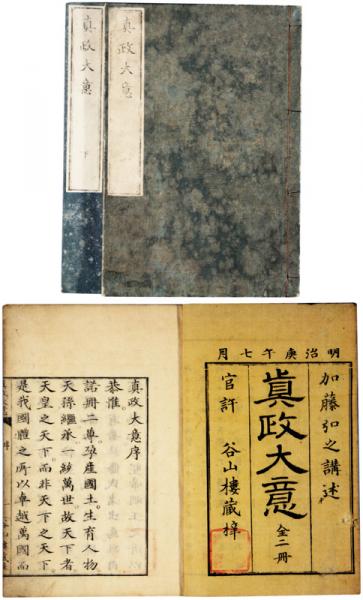 真政大意
真政大意 下
明治庚午七月
加藤弘之講述
眞政大意 全二冊
官許 谷山樓藏梓
真政大意序
恭惟
諾冊二尊孕產國土生育人物
天孫繼承一統萬世故天下者
天皇之天下而非天下之天下
是我國體之所以卓越萬國而